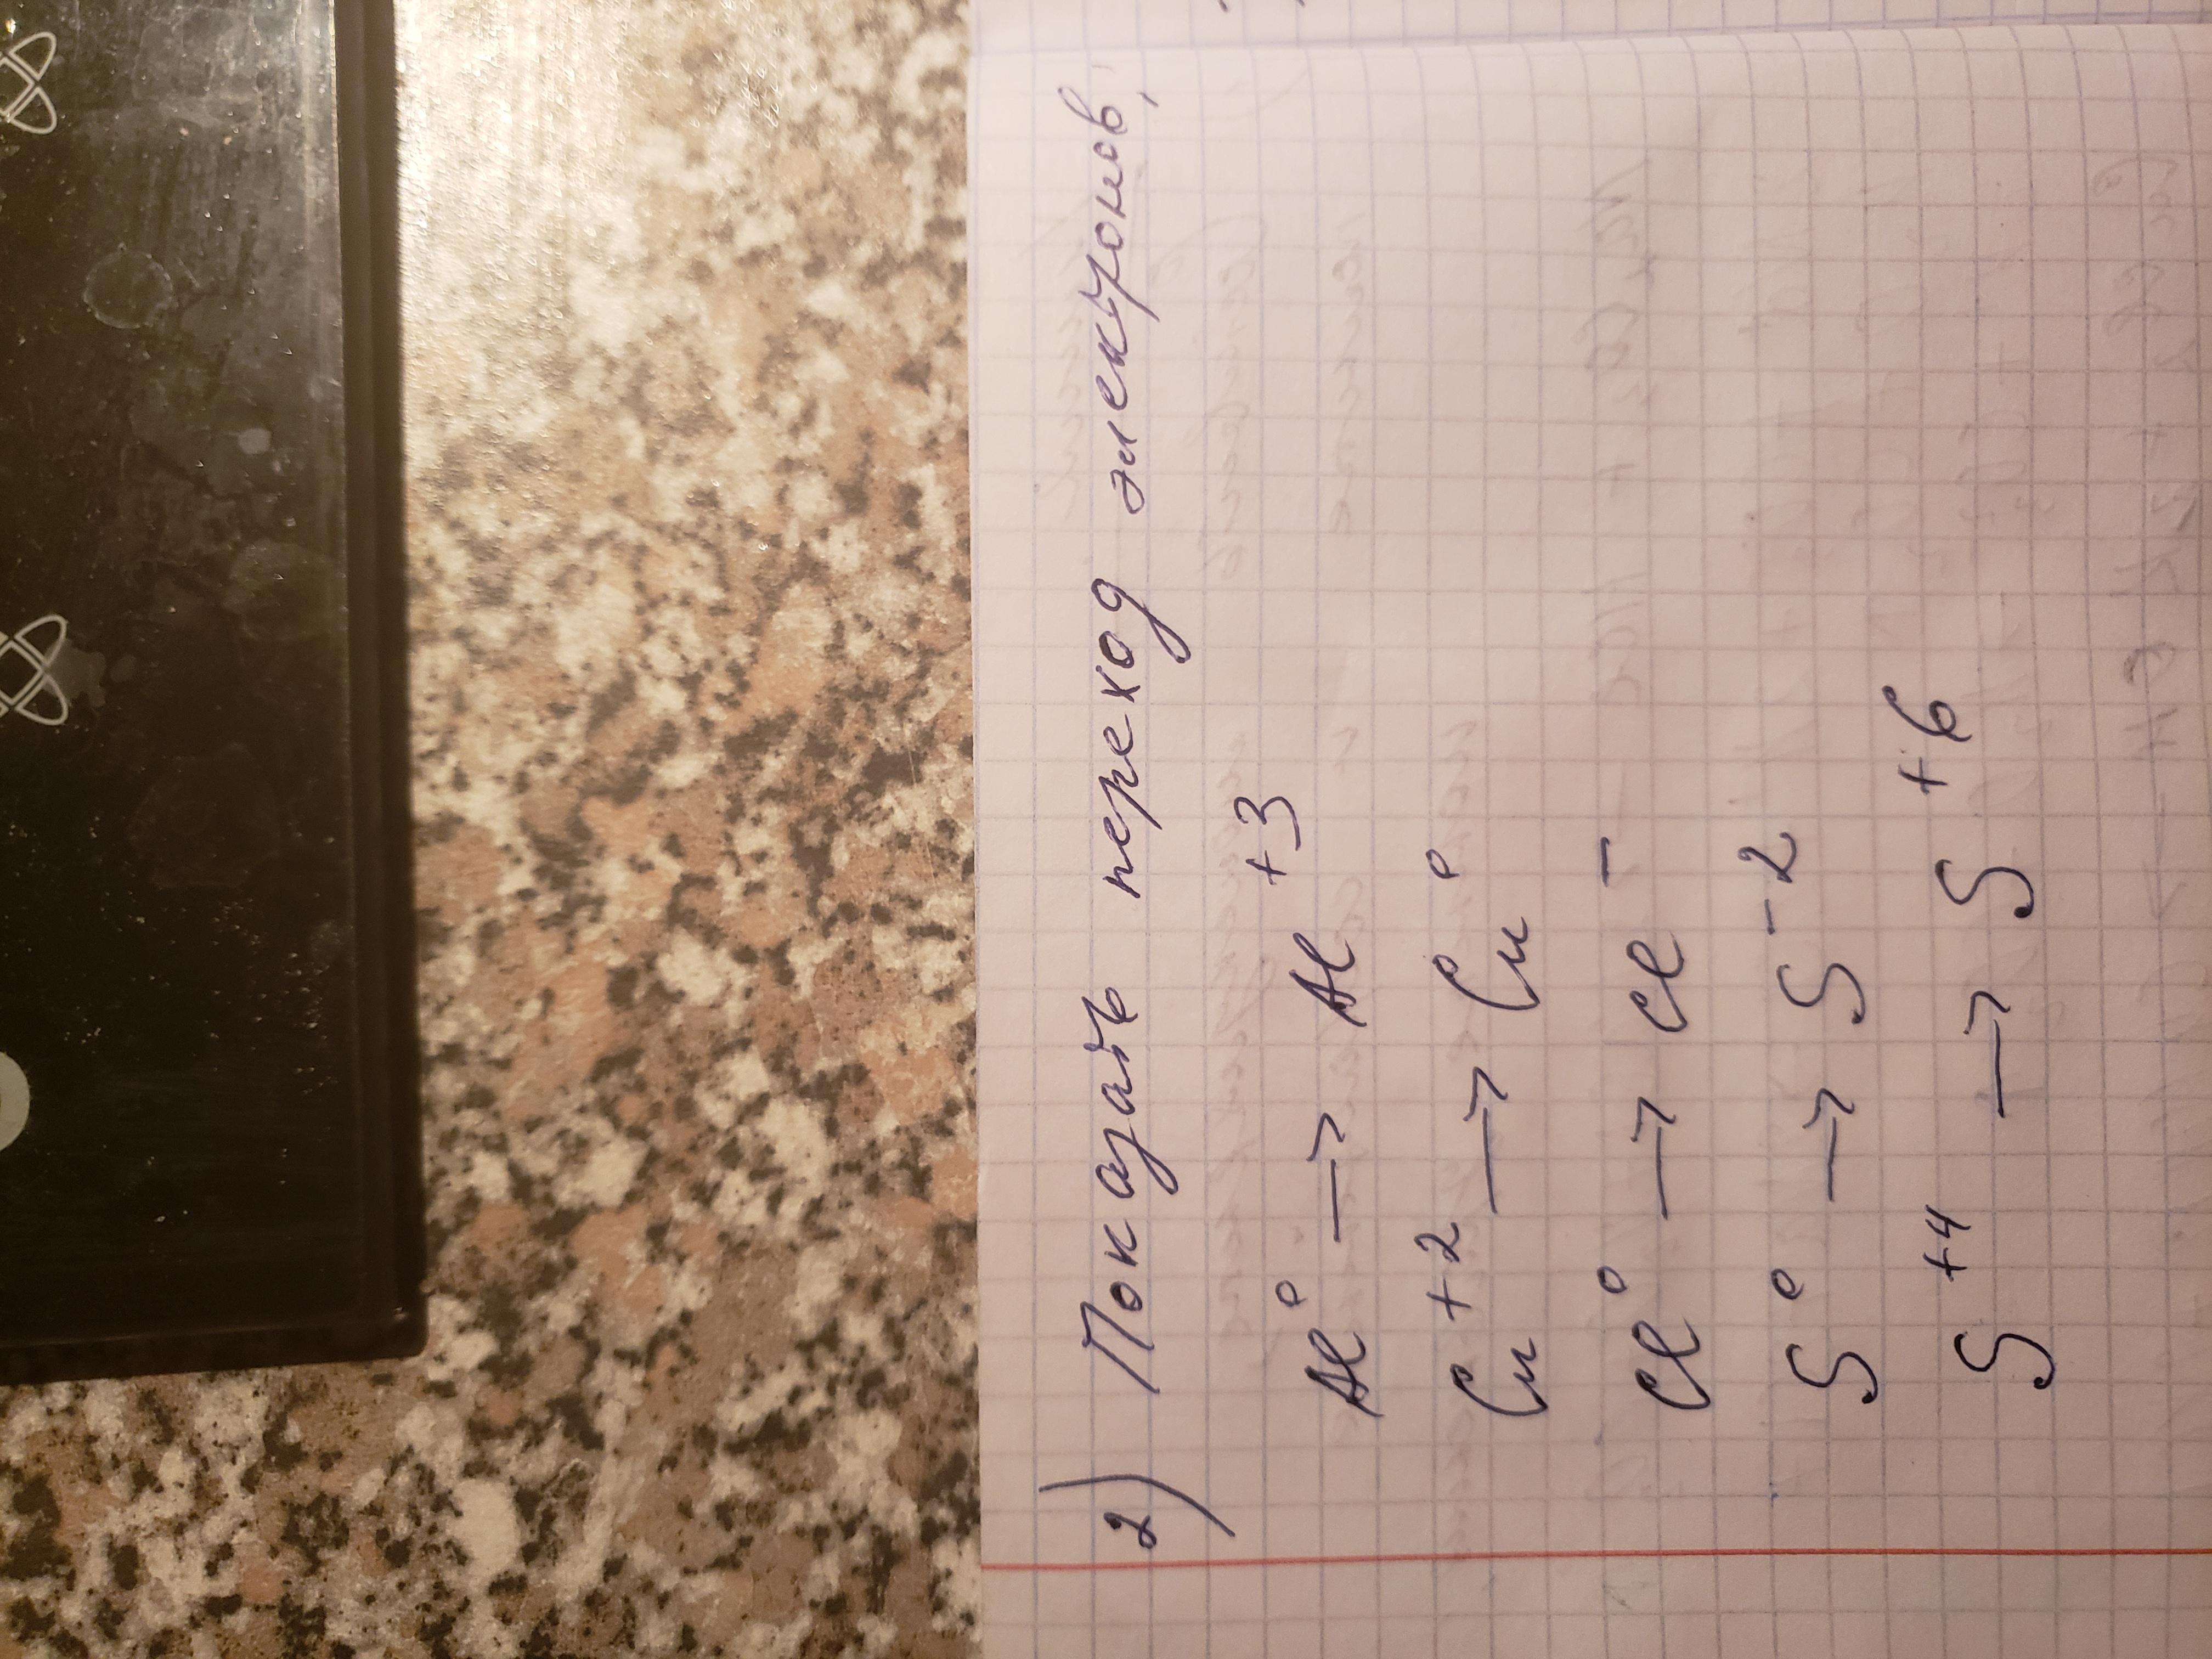 2) Показать переход электронов,
Al⁰ → Al⁺³
Cu⁺² → Cu⁰
Cl⁰ → Cl⁻
S⁰ → S⁻²
S⁺⁴ → S⁺⁶